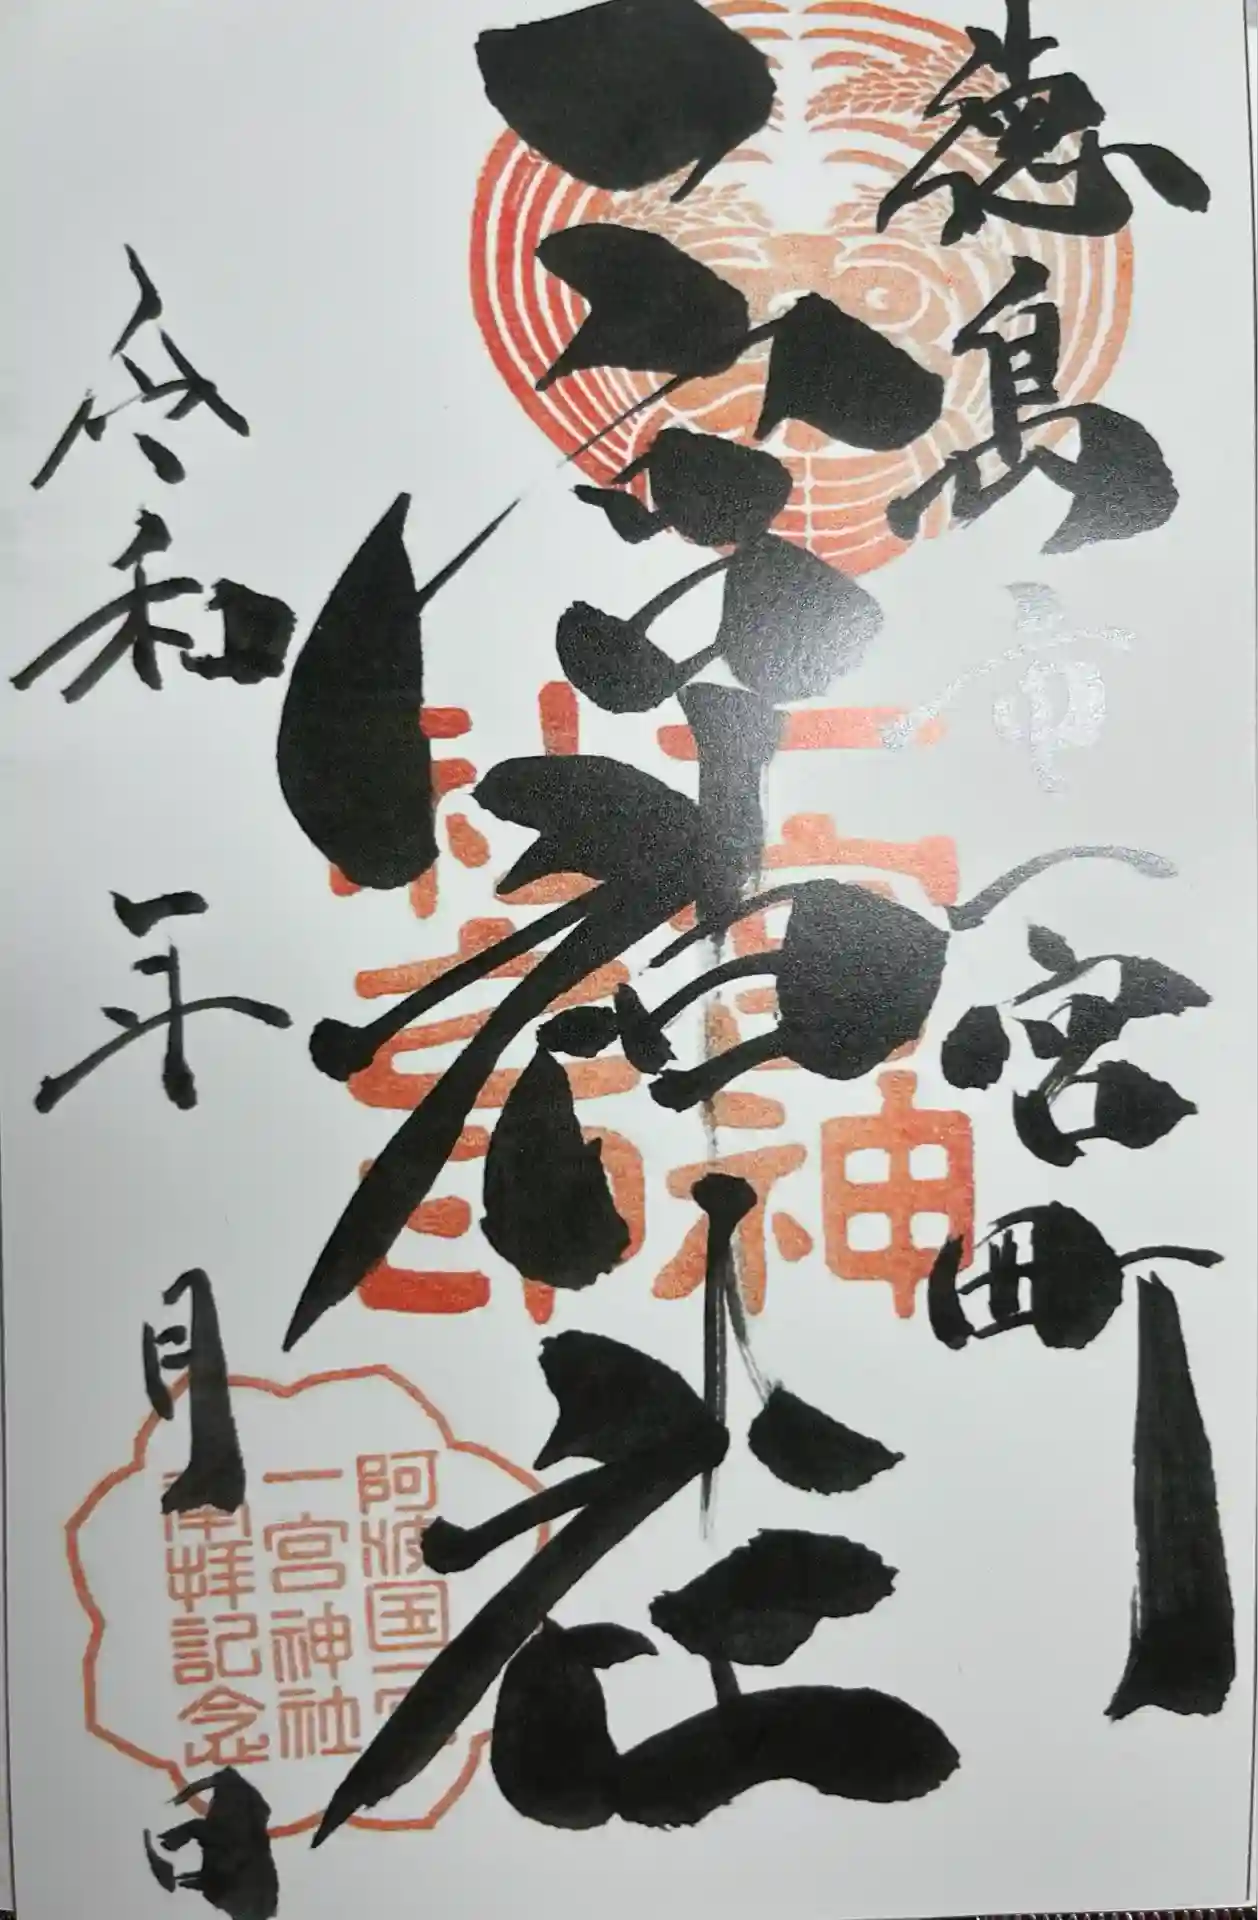 徳島市一宮町
一宮神社
令和 年 月 日
一宮神社之印
阿波国一宮
一宮神社
参拝記念